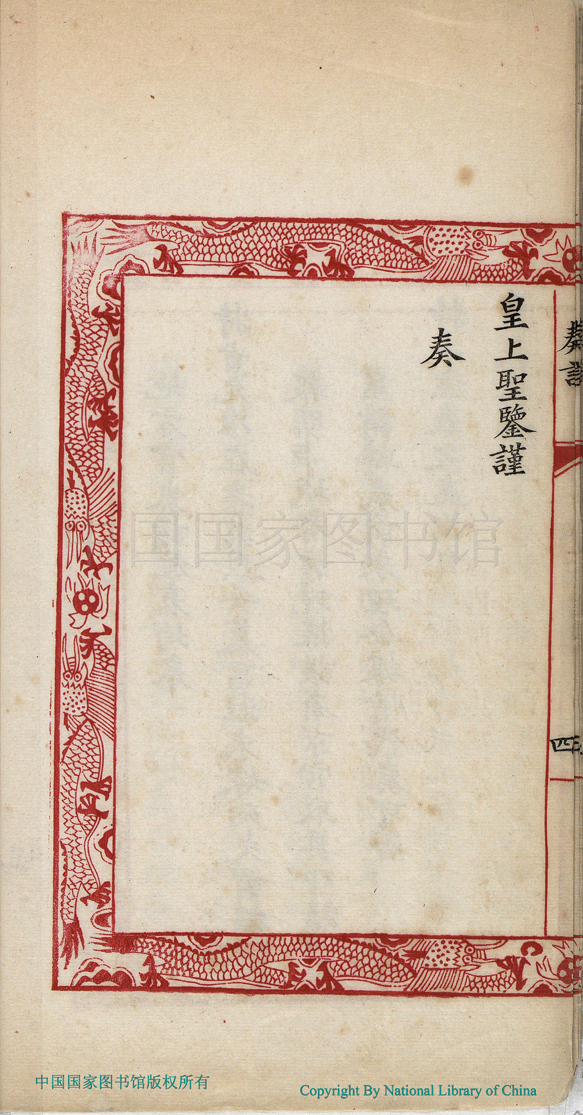 奏議
四
皇上聖鑒謹
奏
国国家图书馆
中国国家图书馆版权所有
Copyright By National Library of China